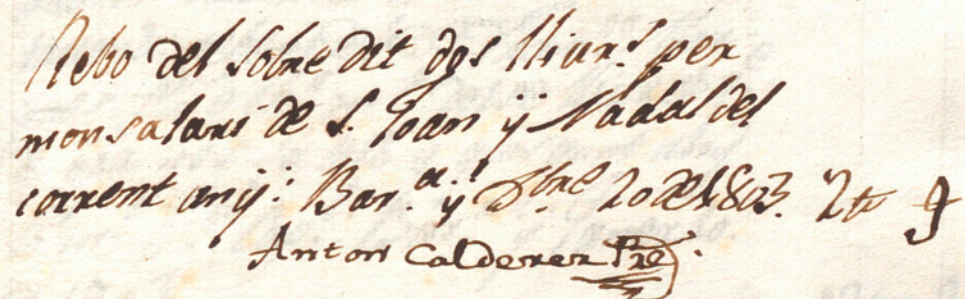 Rebo del sobre dit dos lliur.s per
mon salari de S. Joan y Nadal del
corrent any: Bar.a y Dbre 20 de 1803. 2 tt
Anton Calderer Pre